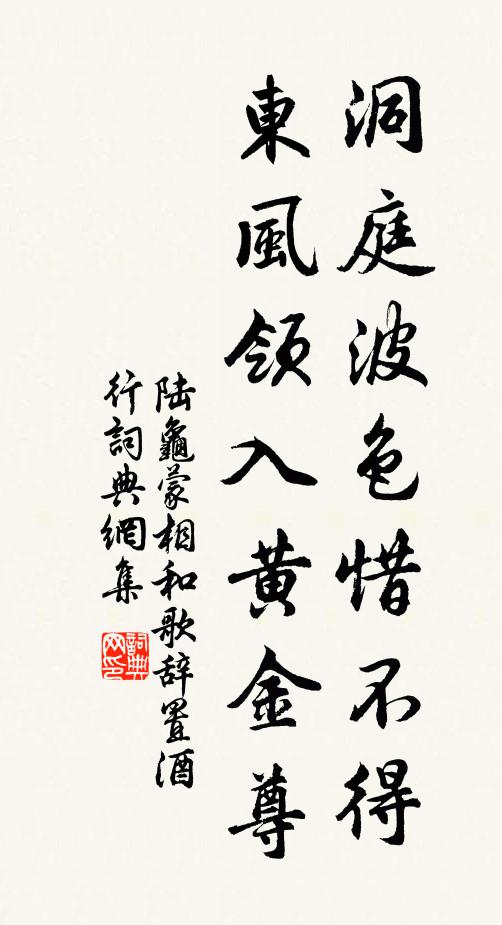 洞庭波色惜不得
東風領入黄金尊
陆龜蒙相和歌辞置酒
行詞典網集
詞典
网印